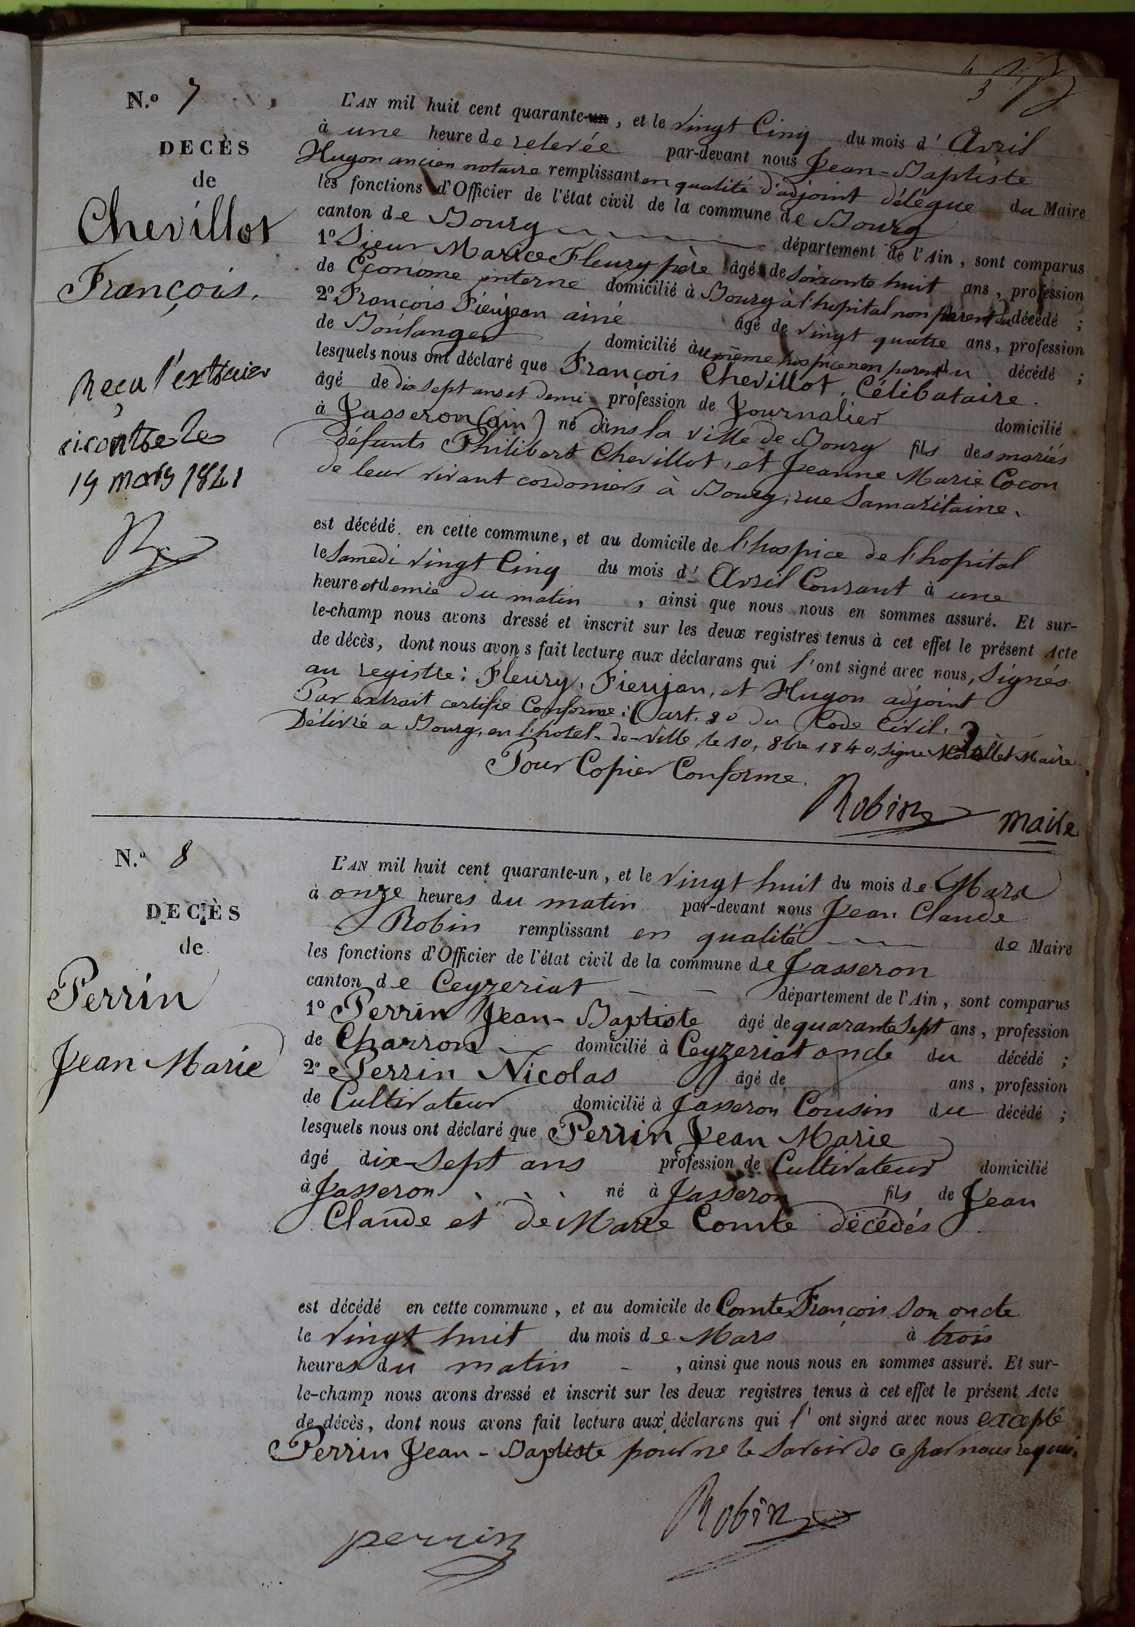 N.º 7
DECÈS
de
Chevillot
François.
Reçu l'extrait
ci contre le
19 mars 1841
L'AN mil huit cent quarante-un, et le vingt Cinq du mois d' Avril
à une heure de relevée par-devant nous Jean-Baptiste
Hugon ancien notaire remplissant en qualité d'adjoint délégué du Maire
les fonctions d'Officier de l'état civil de la commune de Bourg
canton de Bourg département de l'Ain, sont comparus
1º Sieur Marie Fleury père âgé de soixante huit ans, profession
de Econome interne domicilié à Bourg à l'hopital non parent du décédé ;
2º François Fieujean ainé âgé de vingt quatre ans, profession
de Boulanger domicilié au même hospice non parent du décédé ;
lesquels nous ont déclaré que François Chevillot, Célibataire.
âgé de dix sept ans et demi profession de Journalier domicilié
à Jasseron (ain) né dans la ville de Bourg fils des mariés
défunts Philibert Chevillot, et Jeanne Marie Cocon
de leur vivant cordoniers à Bourg, rue Samaritaine.
est décédé en cette commune, et au domicile de l'hospice de l'hopital
le Samedi vingt Cinq du mois d' Avril Courant à une
heure et demie du matin, ainsi que nous nous en sommes assuré. Et sur-
le-champ nous avons dressé et inscrit sur les deux registres tenus à cet effet le présent Acte
de décès, dont nous avons fait lecture aux déclarans qui l'ont signé avec nous, Signés
au registre : Fleury, Fieujean, et Hugon adjoint
Par extrait certifié Conforme : (art. 80 du Code Civil.
Délivré a Bourg, en l'hotel-de-ville, le 10, 8bre 1840, signé Maire
Pour Copier Conforme.
Robin maire
N.º 8
DECÈS
de
Perrin
Jean Marie
L'AN mil huit cent quarante-un, et le vingt huit du mois de Mars
à onze heures du matin par-devant nous Jean Claude
Robin remplissant en qualité de Maire
les fonctions d'Officier de l'état civil de la commune de Jasseron
canton de Ceyzeriat département de l'Ain, sont comparus
1º Perrin Jean-Baptiste âgé de quarante sept ans, profession
de Charron domicilié à Ceyzeriat oncle du décédé ;
2º Perrin Nicolas âgé de ans, profession
de Cultivateur domicilié à Jasseron Cousin du décédé ;
lesquels nous ont déclaré que Perrin Jean Marie
âgé dix-sept ans profession de Cultivateur domicilié
à Jasseron né à Jasseron fils de Jean
Claude et de Marie Comte décédés
est décédé en cette commune, et au domicile de Comte François son oncle
le vingt huit du mois de Mars à trois
heures du matin, ainsi que nous nous en sommes assuré. Et sur-
le-champ nous avons dressé et inscrit sur les deux registres tenus à cet effet le présent Acte
de décès, dont nous avons fait lecture aux déclarans qui l'ont signé avec nous excepté
Perrin Jean-Baptiste pour ne le Savoir de ce par nous requis.
perrin Robin